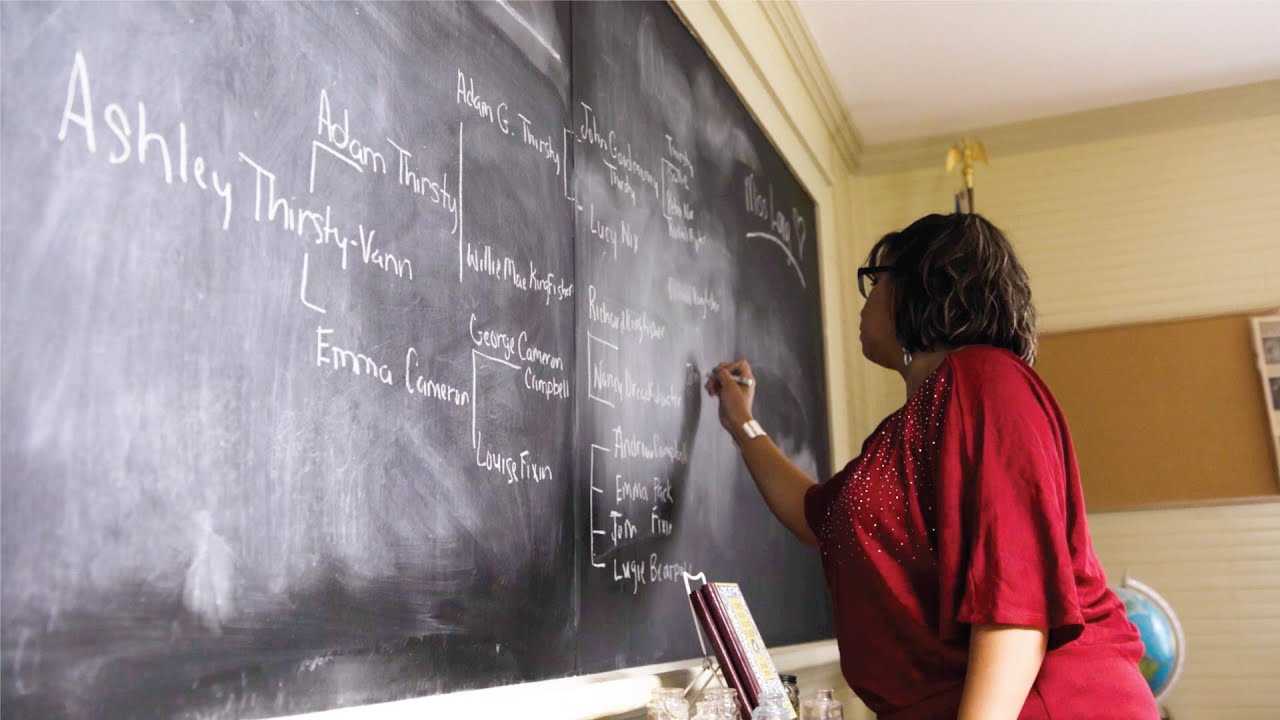 Ashley Thirsty-Vann
Adam Thirsty
Emma Cameron
Adam G. Thirsty
Willie Mae Kingfisher
George Cameron
Campbell
Louise Fixin
John
Thirsty
Lucy Nix
Richard Kingfisher
Nancy
Andrew Campbell
Emma Pack
Tom Fixin
Lugie
Thirsty
Kingfisher
Miss Lana